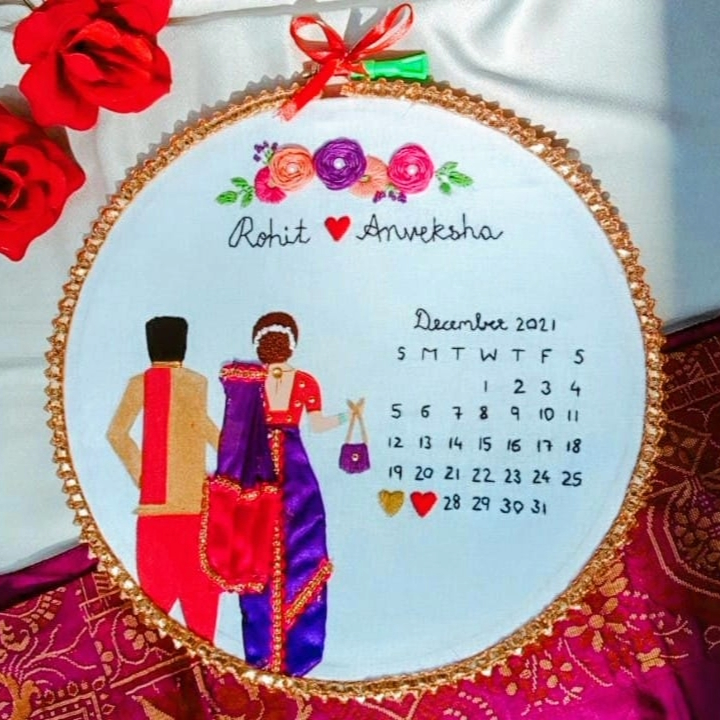 Rohit ❤ Anveksha
December 2021
S M T W T F S
1 2 3 4
5 6 7 8 9 10 11
12 13 14 15 16 17 18
19 20 21 22 23 24 25
28 29 30 31